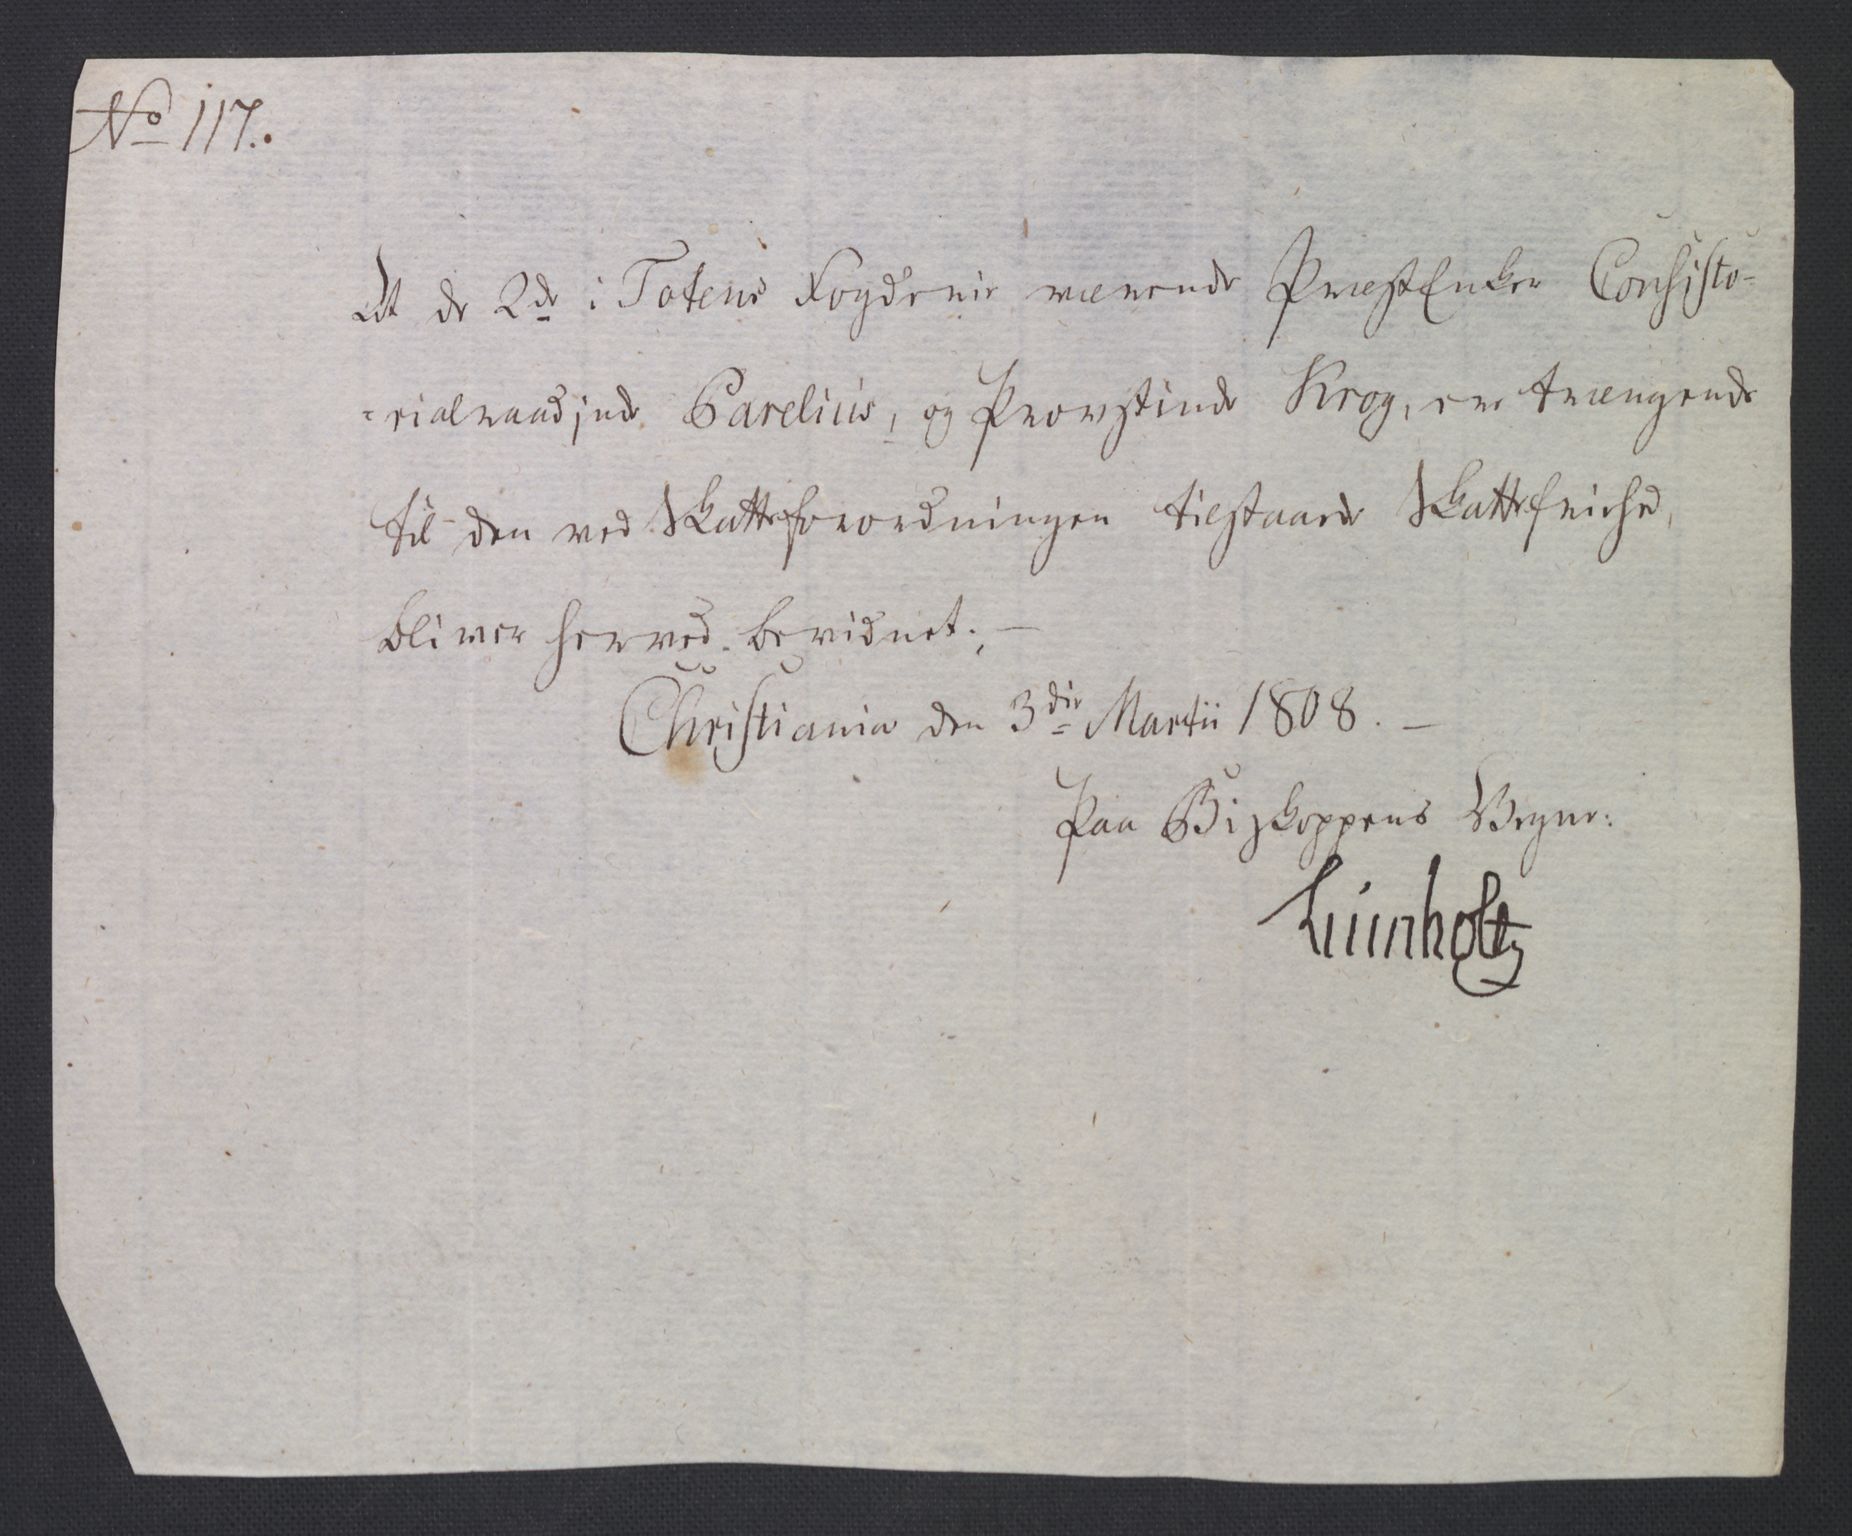 No 117.
At de 2de i Totens Fogderie værende PræstEnker Consisto-
-rialraadinde Parelius, og Provstinde Krog, ere trængende
til den ved Skatteforordningen tilstaaede Skattefriehed,
bliver herved bevidnet. —
Christiania den 3die Martii 1808. —
Paa Biskoppens Vegne:
Lumholtz